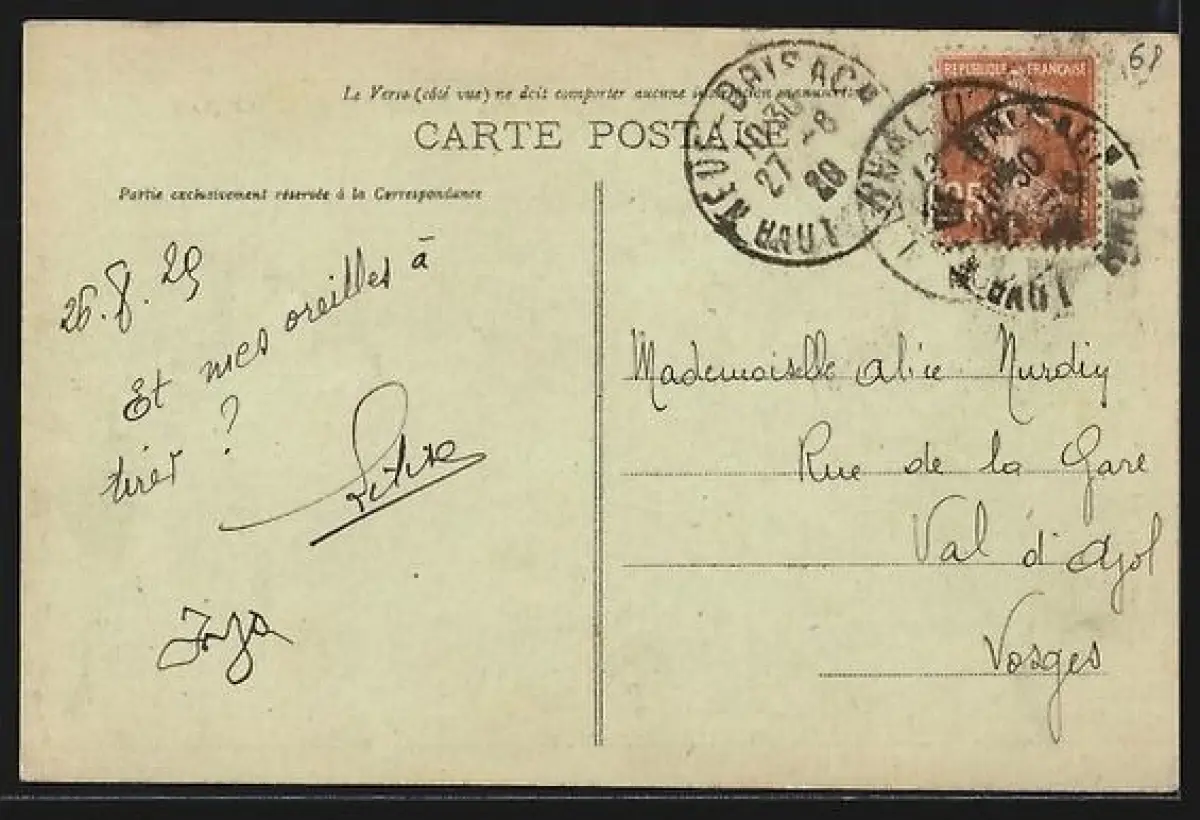 68
RÉPUBLIQUE FRANÇAISE
25
NEUF-BRISACH
10 30
27 -8
29
HAUT-RHIN
Le Verso (côté vue) ne doit comporter aucune inscription manuscrite
CARTE POSTALE
Partie exclusivement réservée à la Correspondance
26.8.29
Et mes oreilles à
tirer ?
Mademoiselle Alice Nurdin
Rue de la Gare
Val d'Ajol
Vosges